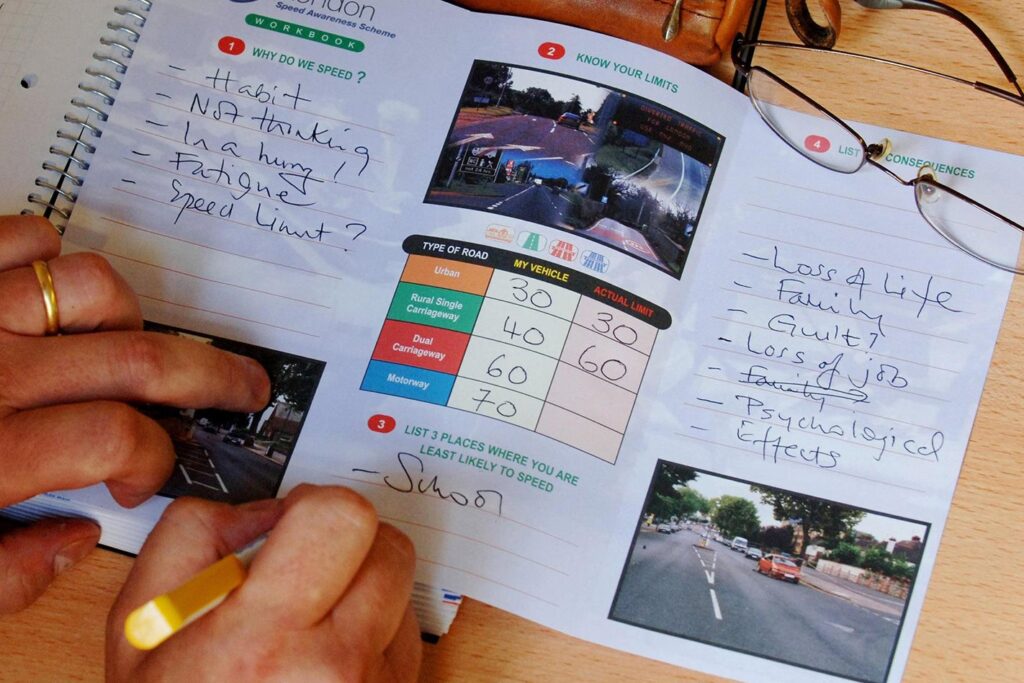 London
Speed Awareness Scheme
WORKBOOK
1 WHY DO WE SPEED?
- Habit
- Not thinking
- In a hurry!!
- Fatigue
- Speed Limit?
2 KNOW YOUR LIMITS
TYPE OF ROAD MY VEHICLE ACTUAL LIMIT
Urban 30 30
Rural Single Carriageway 40 60
Dual Carriageway 60
Motorway 70
3 LIST 3 PLACES WHERE YOU ARE
LEAST LIKELY TO SPEED
- School
4 LIST CONSEQUENCES
- Loss of Life
- Family
- Guilt?
- Loss of job
- Family
- Psychological
- Effects